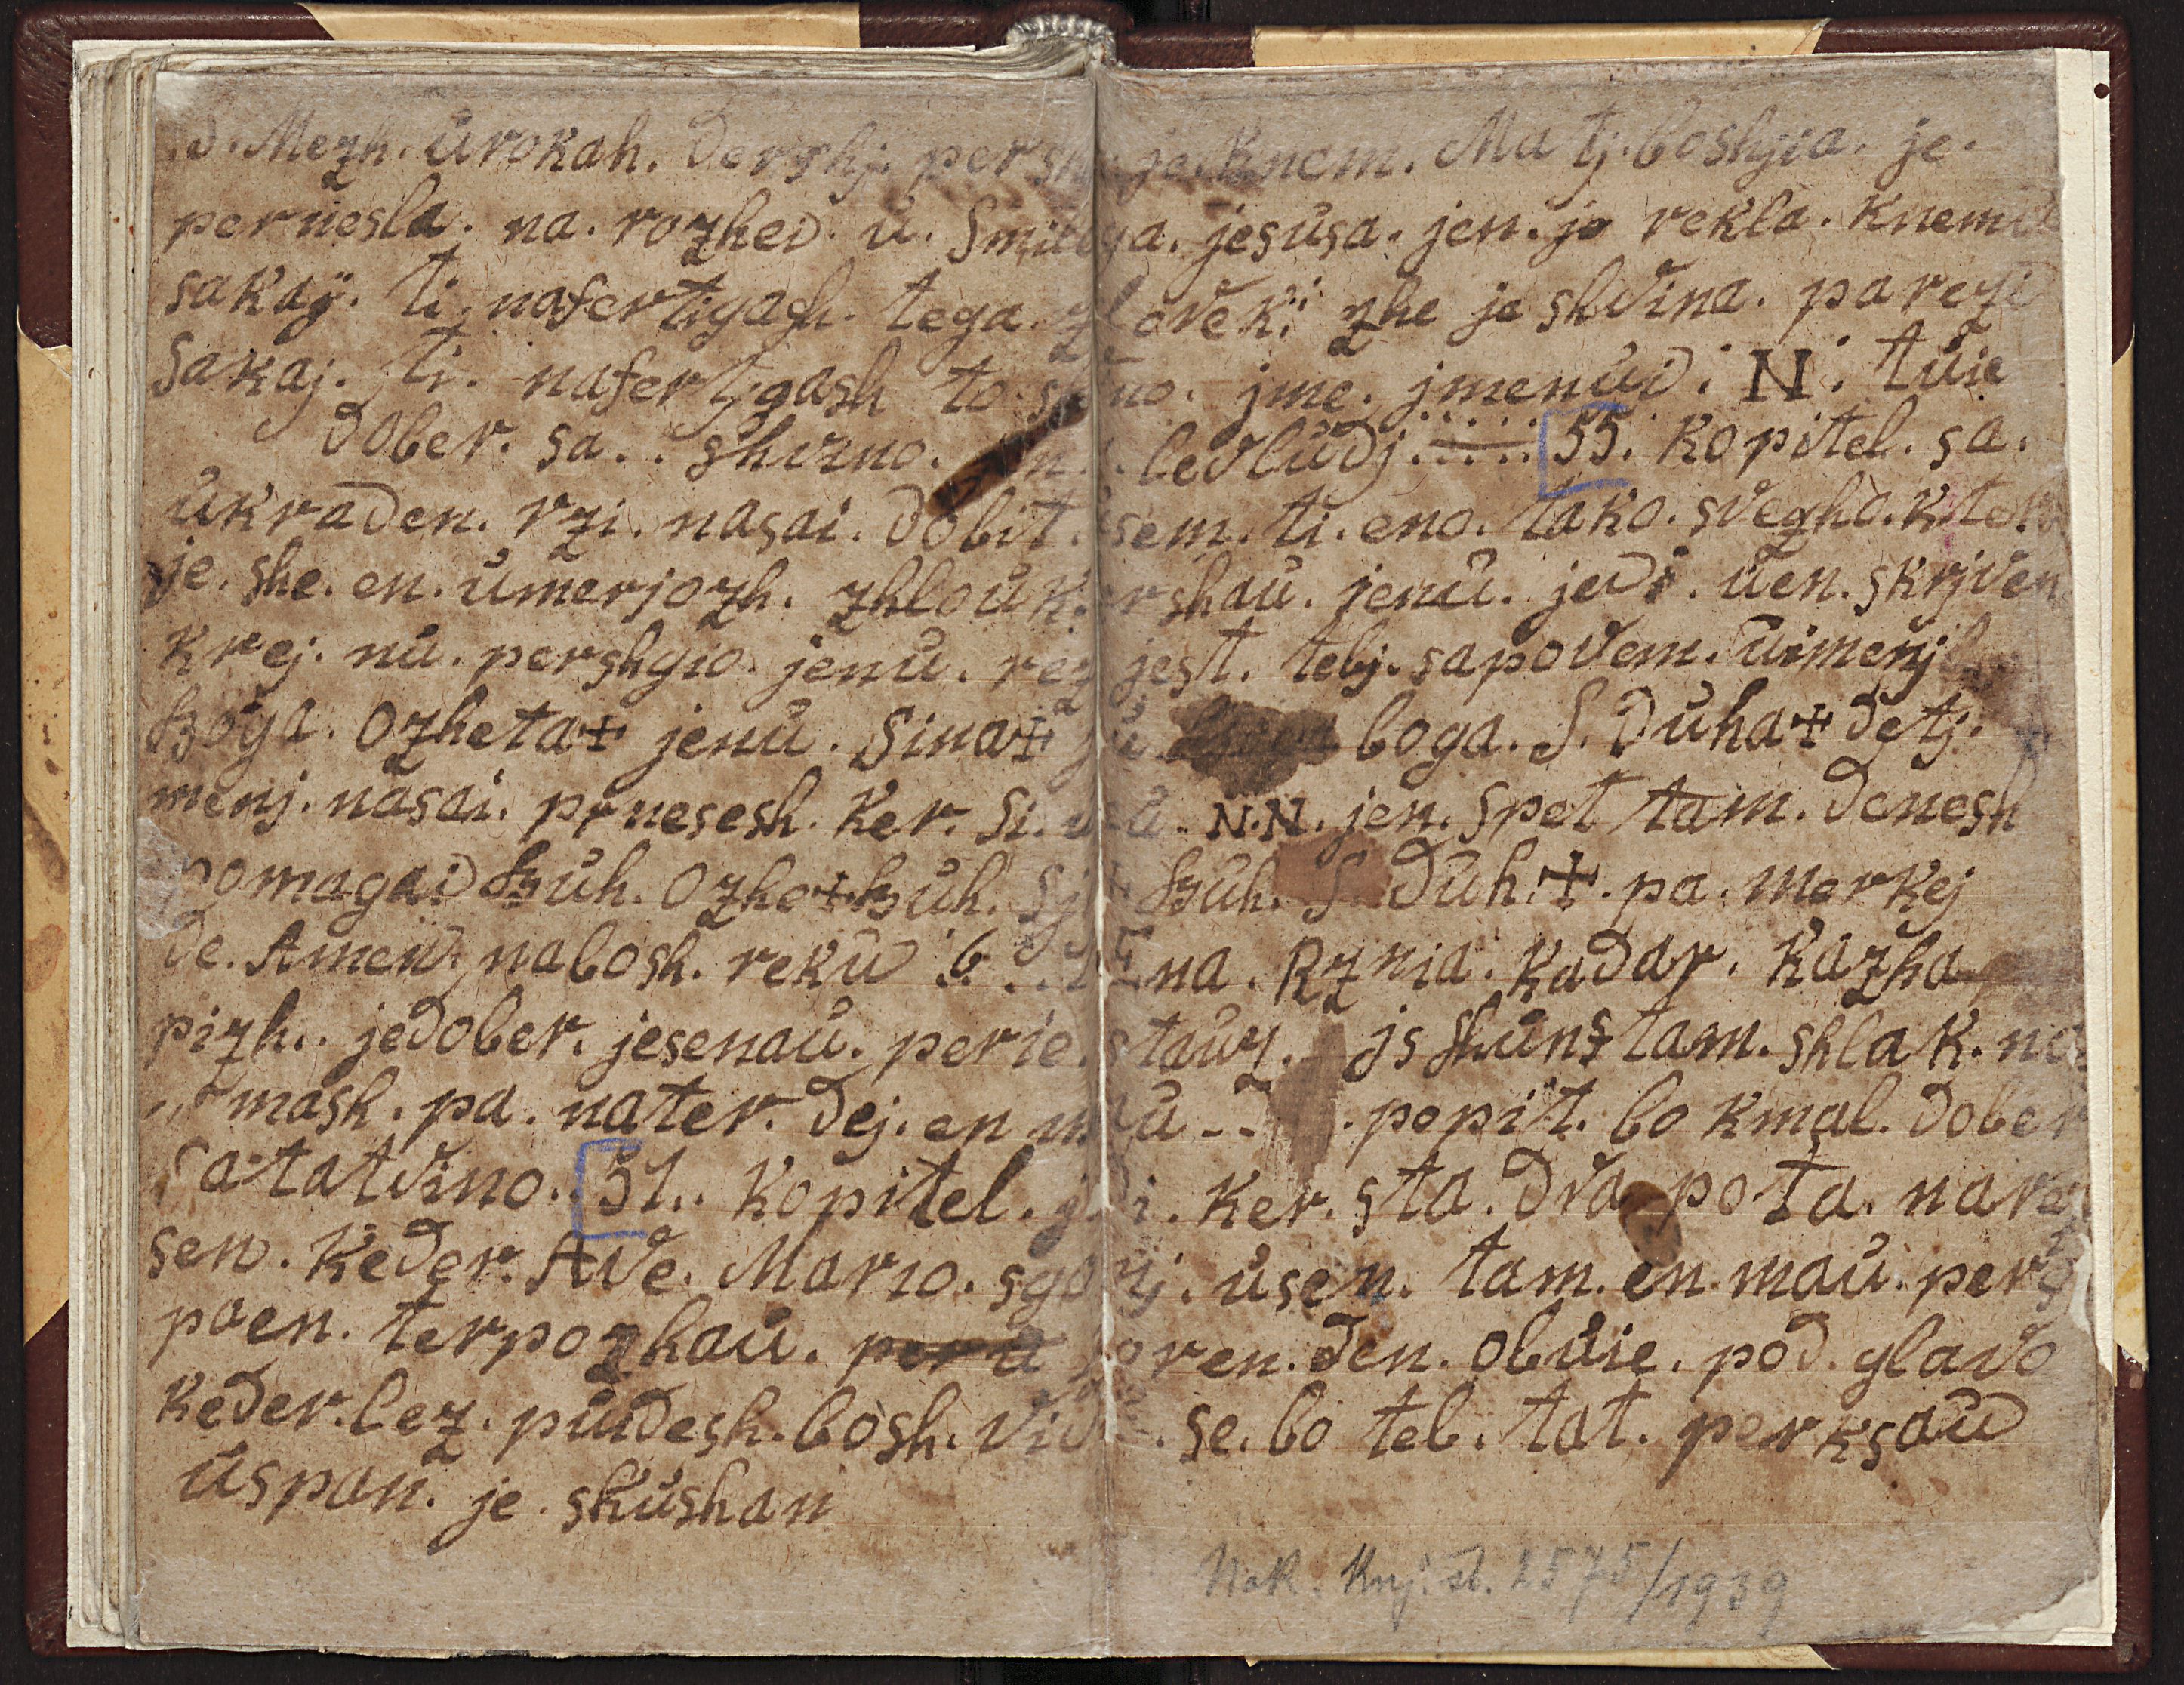 d. Mezh. ůrokah. dershj. persh je. knem. Matj. boshjia. je.
pernesla. na. rozhei. ů. jesůsa. jen. je rekla. knem
sakaij. ti. nafertigash. tega. zloveki zhe je shvina. parezi
sakaj. ti. nafertigash to. jme. jmenůi. N. tůie
dober. sa. shivzno. ledlůdj. ..... 55. kopitel. sa.
ůkraden. rzi. nasai. dobit. sem. ti. eno. tako. svezho. kter
je. she. en. ůmerjozh. zhloůk. shaů. jenů. jedi. ůen. skrjven
krej. nů. pershgio. jenů. jest. tebj. sapovem. ůimenj
boga. Ozheta+ jenů. Sina+ boga. S. Důha+ detj.
menj. nasai. prnesesh. ker. si. N.N. jen. spet tam. denesh
pomagai bůh. Ozhe+ bůh. bůh. S Důh.+. pa. merkej
de. Amen. nabosh. reků 6 .. na. Rznia. kadar. kazha
pizh.. jedober. jesenaů. perie. js shůns tam. shlak. na
mash. pa. nater. dej. en ... popit. bo kmal. dober
satatvino. 51.. kopitel. ker. sta. dva pota. nare
sen. keder. Ave. Mario. ůsen. tam. en. maů. per
poen. terpozhaů. perů den. obůie. pod. glavo
keder. lez. půdesh. bosh. se. bo teb. tat. perksaů
ůspan. je. skůshan
2575/1939